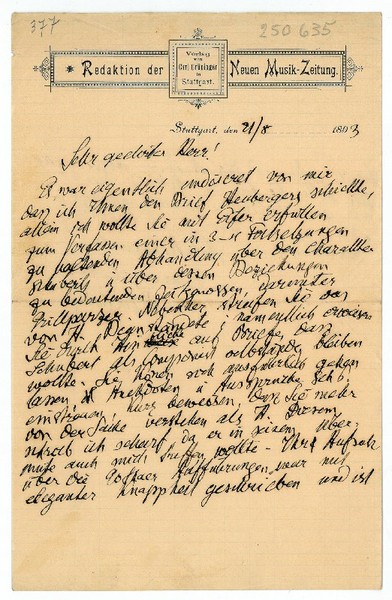 377
250 635
Redaktion der
Verlag
von
Carl Grüninger
in
Stuttgart.
Neuen Musik-Zeitung.
Stuttgart, den 21/8 1893
Sehr geehrter Herr!
Es war eigentlich indiscret von mir
daß ich Ihnen den Brief Heubergers schickte,
allein ich wollte Sie mit Eifer erfüllen
zum Verfassen einer in 3-4 Fortsetzungen
zu Abhandlung über den Charakter
Schuberts u über dessen Beziehungen
zu bedeutenden Zeitgenossen, darunter
Grillparzer. Nebenher streifen Sie das
von H. ; namentlich erweisen
Sie durch auf Briefe, daß
Schubert als Componist selbständig bleiben
wollte. Sie können sich ausführlich gehen
lassen Anekdoten u Aussprüche Sch's.
einstreuen, kurz beweisen, daß Sie mehr
von der Sache verstehen als H. Diesem
schrieb ich scharf, da er in seinem
auch mich treffen wollte. Ihr Aufsatz
über die Gothaer Aufführungen war mit
eleganter Knappheit geschrieben und ist